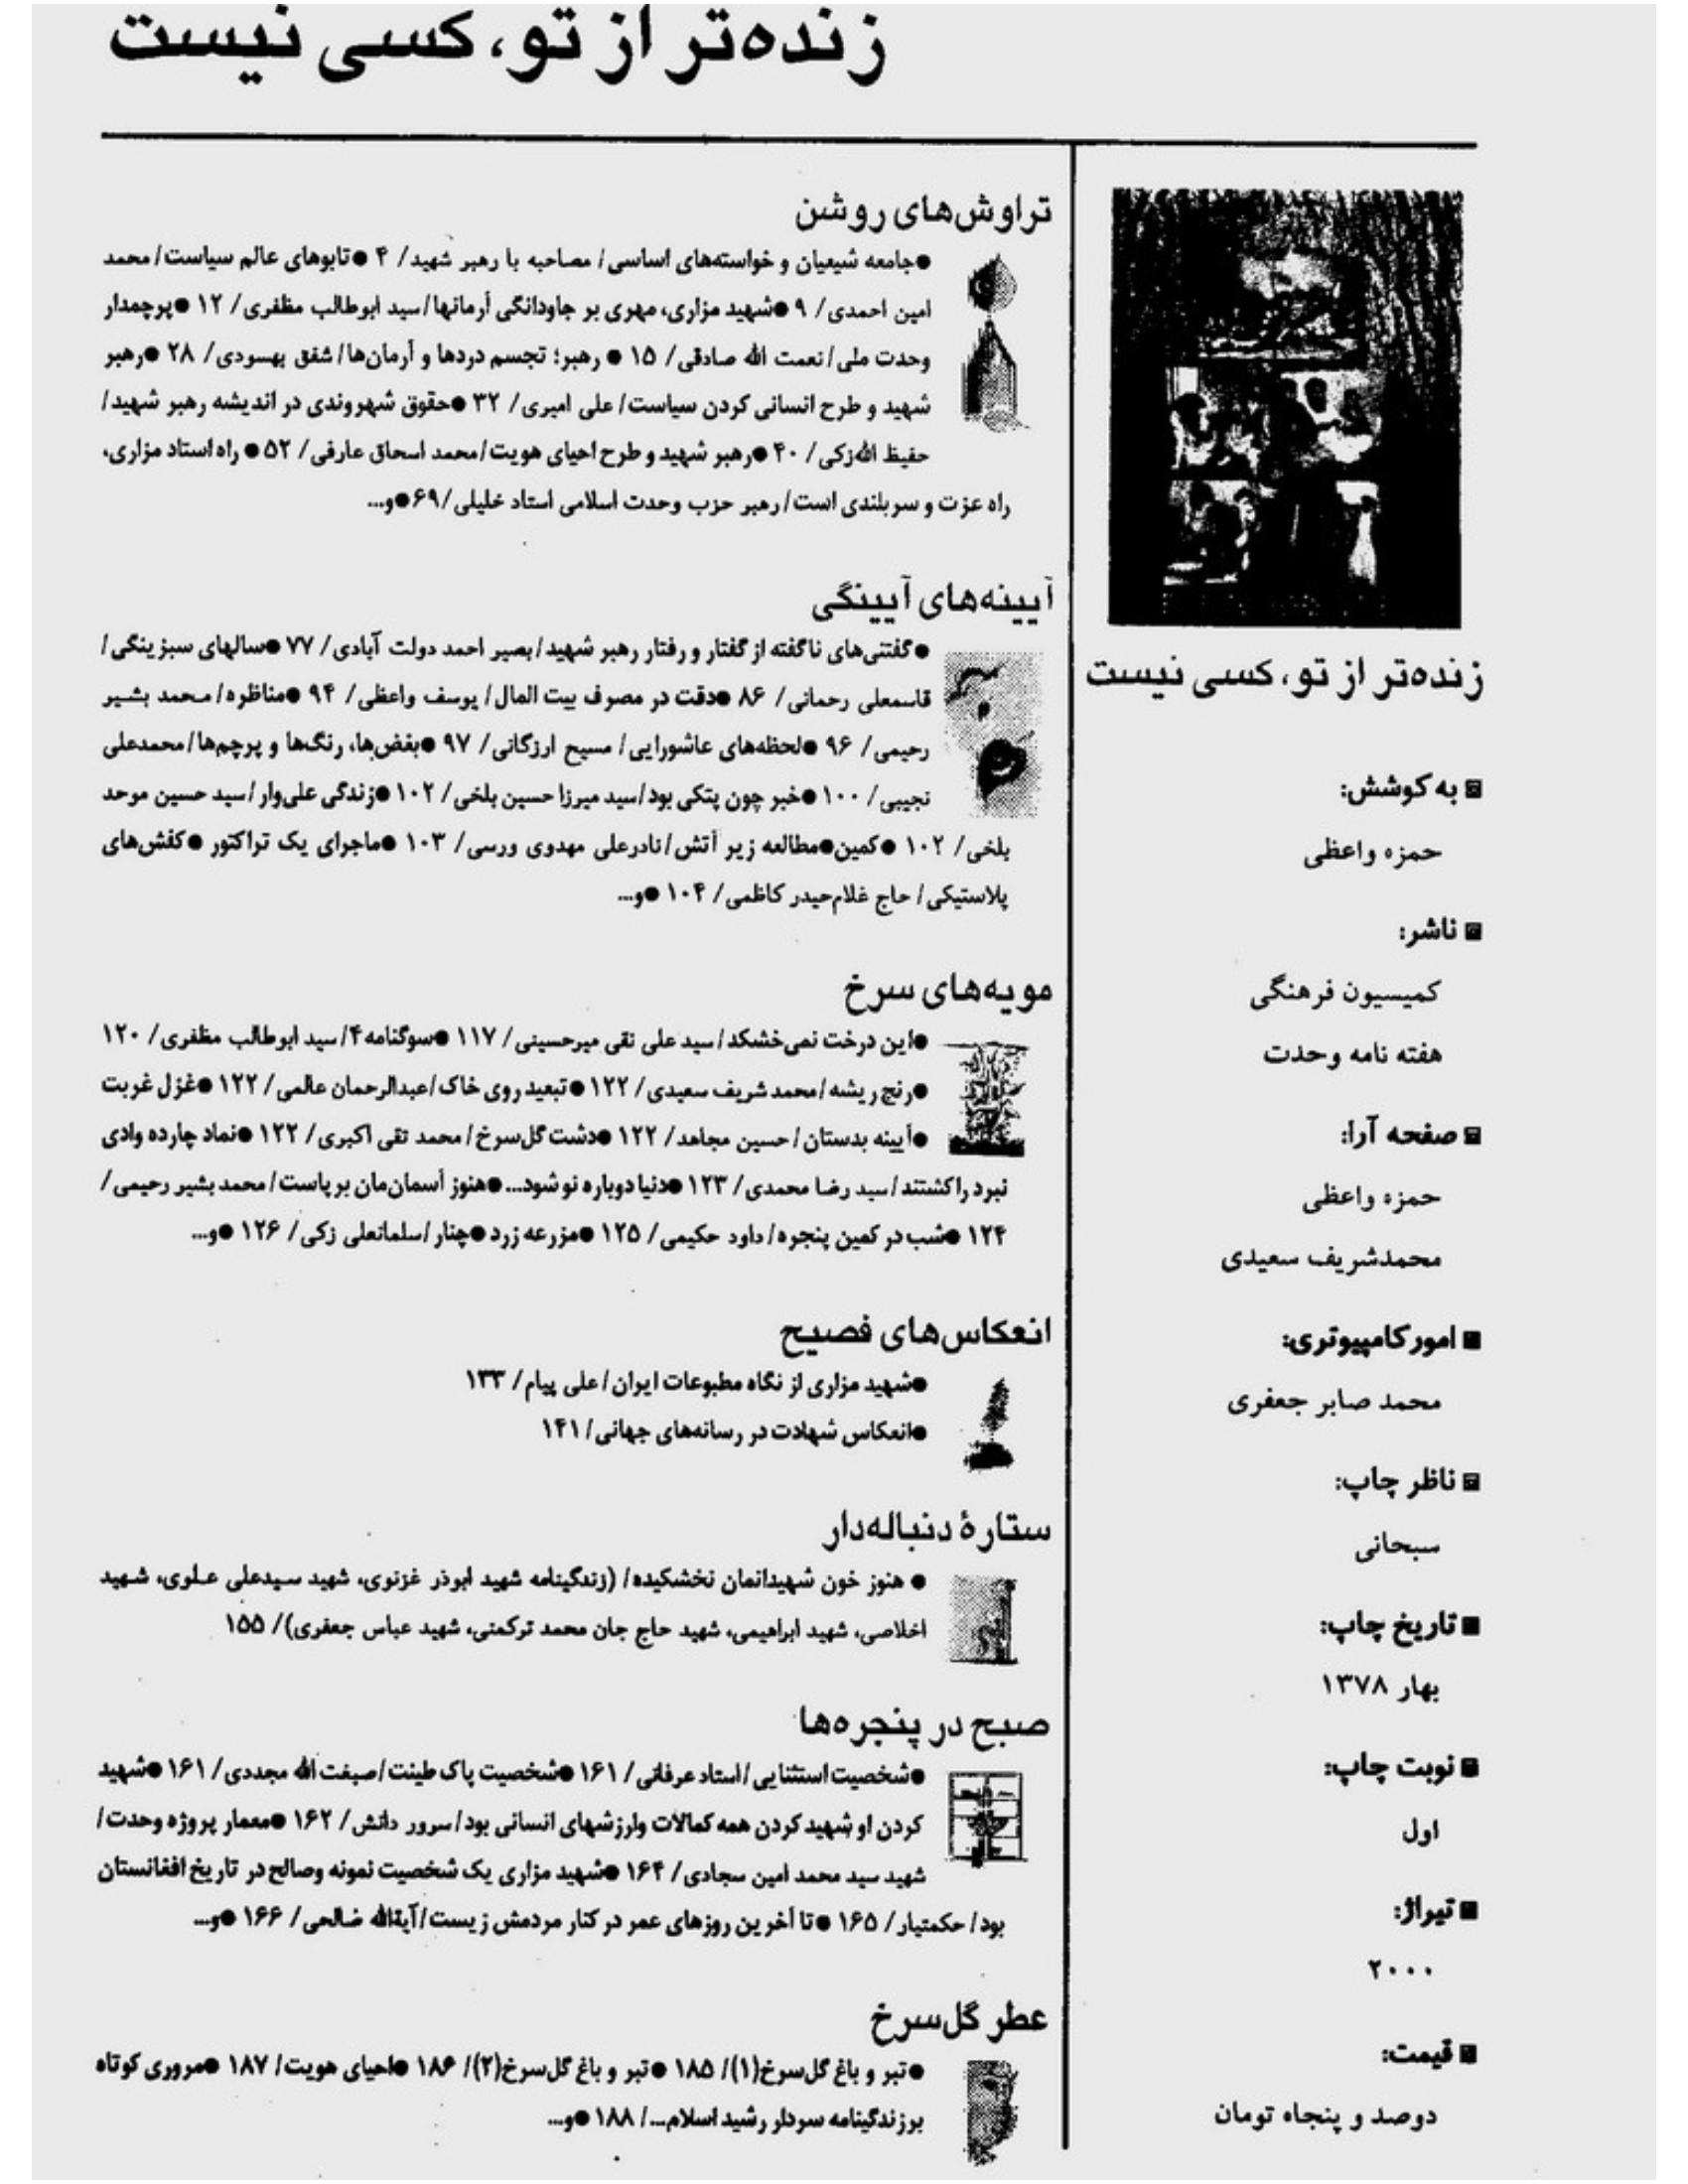 زنده‌تر از تو، کسی نیست
زنده‌تر از تو، کسی نیست
به کوشش:
حمزه واعظی
ناشر:
کمیسیون فرهنگی
هفته نامه وحدت
صفحه آرا:
حمزه واعظی
محمدشریف سعیدی
امور کامپیوتری:
محمد صابر جعفری
ناظر چاپ:
سبحانی
تاریخ چاپ:
بهار ۱۳۷۸
نوبت چاپ:
اول
تیراژ:
۲۰۰۰
قیمت:
دوصد و پنجاه تومان
تراوش‌های روشن
●جامعه شیعیان و خواسته‌های اساسی/ مصاحبه با رهبر شهید/ ۴ ●تابوهای عالم سیاست/محمد
امین احمدی/ ۹ ●شهید مزاری، مهری بر جاودانگی آرمانها/سید ابوطالب مظفری/ ۱۲ ●پرچمدار
وحدت ملی/نعمت الله صادقی/ ۱۵ ● رهبر؛ تجسم دردها و آرمان‌ها/شفق بهسودی/ ۲۸ ●رهبر
شهید و طرح انسانی کردن سیاست/ علی امیری/ ۳۲ ●حقوق شهروندی در اندیشه رهبر شهید/
حفیظ الله‌زکی/ ۴۰ ●رهبر شهید و طرح احیای هویت/محمد اسحاق عارفی/ ۵۲ ● راه استاد مزاری،
راه عزت و سربلندی است/ رهبر حزب وحدت اسلامی استاد خلیلی/۶۹ ●و...
آیینه‌های آیینگی
●گفتنی‌های ناگفته از گفتار و رفتار رهبر شهید/بصیر احمد دولت آبادی/ ۷۷ ●سالهای سبز ینگی/
قاسمعلی رحمانی/ ۸۶ ●دقت در مصرف بیت المال/ یوسف واعظی/ ۹۴ ●مناظره/محمد بشیر
رحیمی/ ۹۶ ●لحظه‌های عاشورایی/ مسیح ارزگانی/ ۹۷ ●بغض‌ها، رنگ‌ها و پرچم‌ها/محمدعلی
نجیبی/ ۱۰۰ ●خبر چون پتکی بود/سید میرزا حسین بلخی/ ۱۰۲ ●زندگی علی‌وار/سید حسین موحد
بلخی/ ۱۰۲ ●کمین●مطالعه زیر آتش/نادرعلی مهدوی ورسی/ ۱۰۳ ●ماجرای یک تراکتور ●کفش‌های
پلاستیکی/ حاج غلام‌حیدر کاظمی/ ۱۰۴ ●و...
مویه‌های سرخ
●این درخت نمی‌خشکد/سید علی نقی میرحسینی/ ۱۱۷ ●سوگنامه۴/ سید ابوطالب مظفری/ ۱۲۰
●رنج ریشه/محمد شریف سعیدی/ ۱۲۲ ●تبعید روی خاک/عبدالرحمان عالمی/ ۱۲۲ ●غزل غربت
●آیینه بدستان/حسین مجاهد/ ۱۲۲ ●دشت گل‌سرخ/محمد تقی اکبری/ ۱۲۲ ●نماد چارده وادی
نبرد را کشتند/سید رضا محمدی/ ۱۲۳ ●دنیا دوباره نو شود... ●هنوز آسمان‌مان برپاست/محمد بشیر رحیمی/
۱۲۴ ●شب در کمین پنجره/داود حکیمی/ ۱۲۵ ●مزرعه زرد ●چنار/سلمانعلی زکی/ ۱۲۶ ●و...
انعکاس‌های فصیح
●شهید مزاری از نگاه مطبوعات ایران/علی پیام/ ۱۳۳
●انعکاس شهادت در رسانه‌های جهانی/ ۱۴۱
ستارهٔ دنباله‌دار
● هنوز خون شهیدانمان نخشکیده/ (زندگینامه شهید ابوذر غزنوی، شهید سیدعلی علوی، شهید
اخلاصی، شهید ابراهیمی، شهید حاج جان محمد ترکمنی، شهید عباس جعفری)/ ۱۵۵
صبح در پنجره‌ها
●شخصیت استثنایی/استاد عرفانی/ ۱۶۱ ●شخصیت پاک طینت/صبغت الله مجددی/ ۱۶۱ ●شهید
کردن او شهید کردن همه کمالات وارزشهای انسانی بود/سرور دانش/ ۱۶۲ ●معمار پروژه وحدت/
شهید سید محمد امین سجادی/ ۱۶۴ ●شهید مزاری یک شخصیت نمونه وصالح در تاریخ افغانستان
بود/حکمتیار/ ۱۶۵ ●تا آخرین روزهای عمر در کنار مردمش زیست/آیةالله صالحی/ ۱۶۶ ●و...
عطر گل‌سرخ
●تبر و باغ گل‌سرخ(۱)/ ۱۸۵ ●تبر و باغ گل‌سرخ(۲)/ ۱۸۶ ●احیای هویت/ ۱۸۷ ●مروری کوتاه
برزندگینامه سردار رشید اسلام.../ ۱۸۸ ●و...